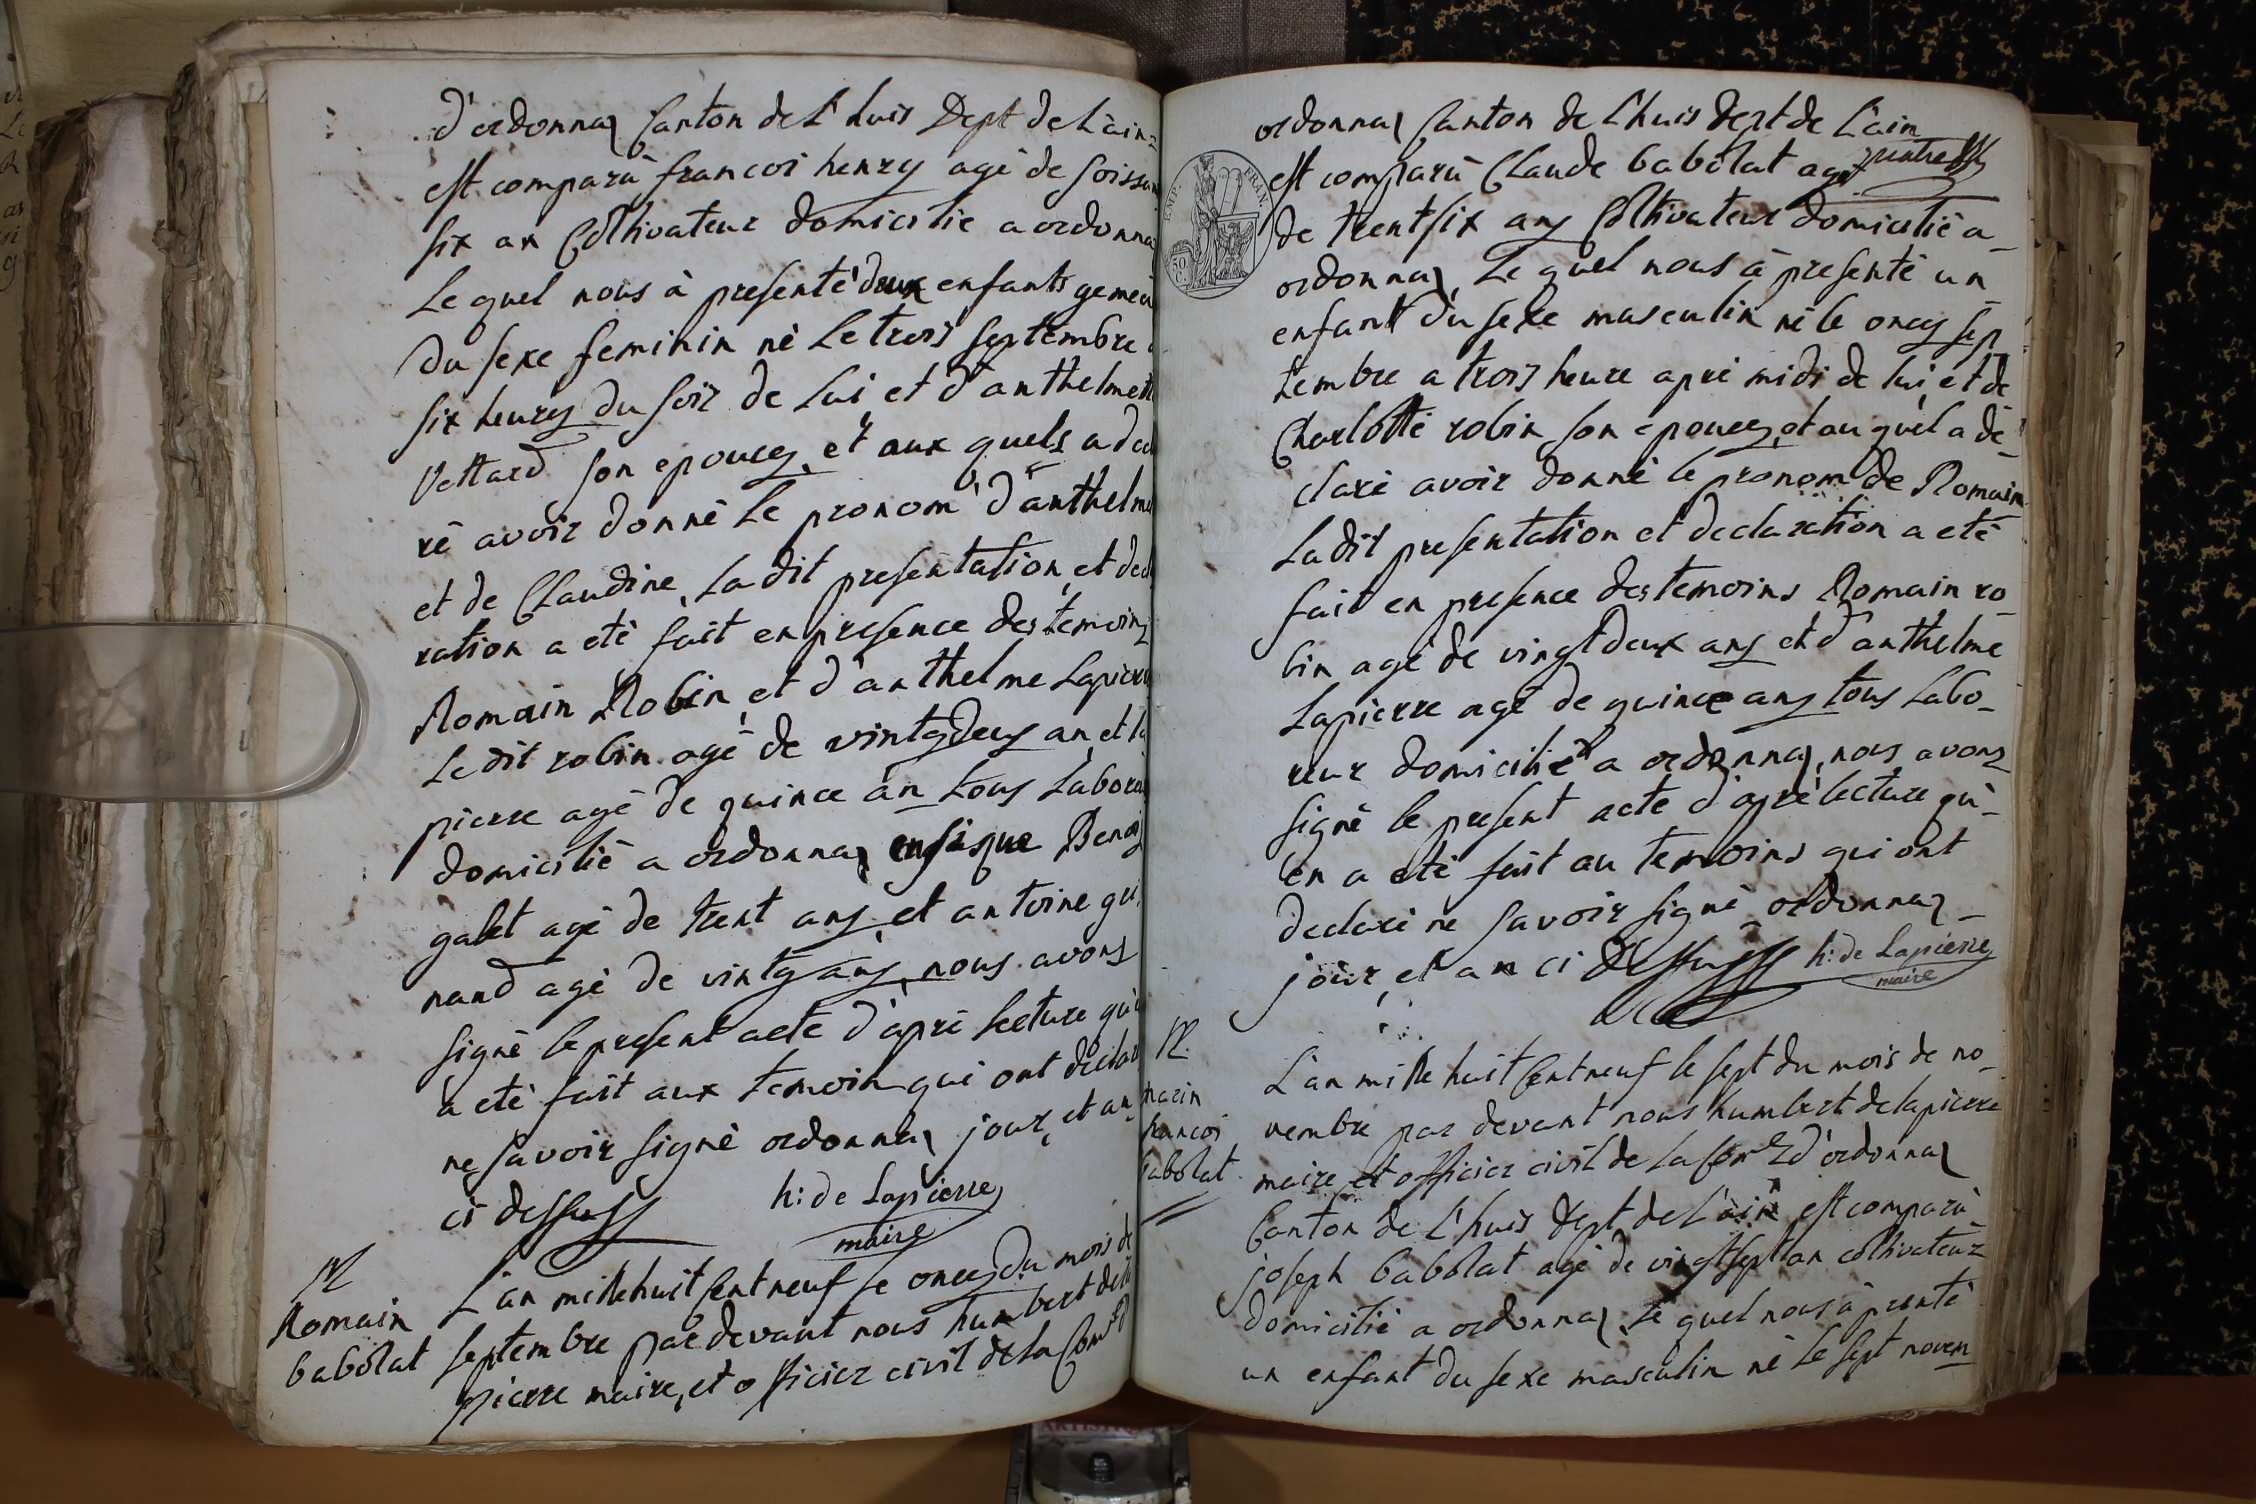 d'ordonnaz Canton de L'huis Dept de Làin
est comparù francoi henry agé de soissan
six an Coltivateur domicilié a ordonna
Le quel nous à presenté deux enfants gemeu
du sexe feminin né Le trois septembre
six heures du soir de Lui et d'anthelmett
Vettard son epouce, et aux quels a decl
ré avoir donné Le pronom d'anthelme
et de Claudine, La dit presentation, et decl
ration a eté fait en presence des temoins
Romain Robin, et d'anthelme Lapierre
Le dit robin agé de vintgdeus an, et la
pierre agé de quince an tous Labora
domicilié a ordonnaz ensisque Benoi
galet agé de trent ans, et antoine gui
nand agé de vintg ans, nous avons
signé le present acte d'apré lecture qui
a eté fait aux temoin qui ont declar
ne savoir signé ordonnaz jour, et an
ci dessuss h: de Lapierre
maire
N
Romain
babolat
L'an mille huit Cent neuf le onces du mois de
septembre par devant nous humbert de la
pierre maire, et officier civil de la Comne
ordonnaz Canton de L'huis Dept de L'ain
est comparù Claude babolat agé
de trentsix ans Coltivateur domicilié a
ordonnaz, Le quel nous à presenté un
enfant du sexe masculin né le onces sep
tembre a trois heure apré midi de lui, et de
Charlotte robin son epouces, et au quel a dé
claré avoir donné le pronom de Romain
La dit presentation et declaration a eté
fait en presence des temoins Romain ro
bin agé de vingtdeux ans et d'anthelme
Lapierre agé de quince ans tous Labo
reur domicilié a ordonnaz, nous avons
signé le present acte d'apré lecture qu'
en a eté fait au temoins qui ont
declaré ne savoir signé ordonnaz
jour, et an ci dessuss h: de Lapierre
maire
N.
marin
francoi
babolat
L'an mille huit Cent neuf le sept du mois de no
vembre par devant nous humbert de lapierre
maire, et officier civil de la Comne d'ordonnaz
Canton de L'huis Dept de L'ain est comparù
joseph babolat agé de vingtsept an coltivateur
domicilié a ordonnaz, Le quel nous à prenté
un enfant du sexe masculin né Le sept novem